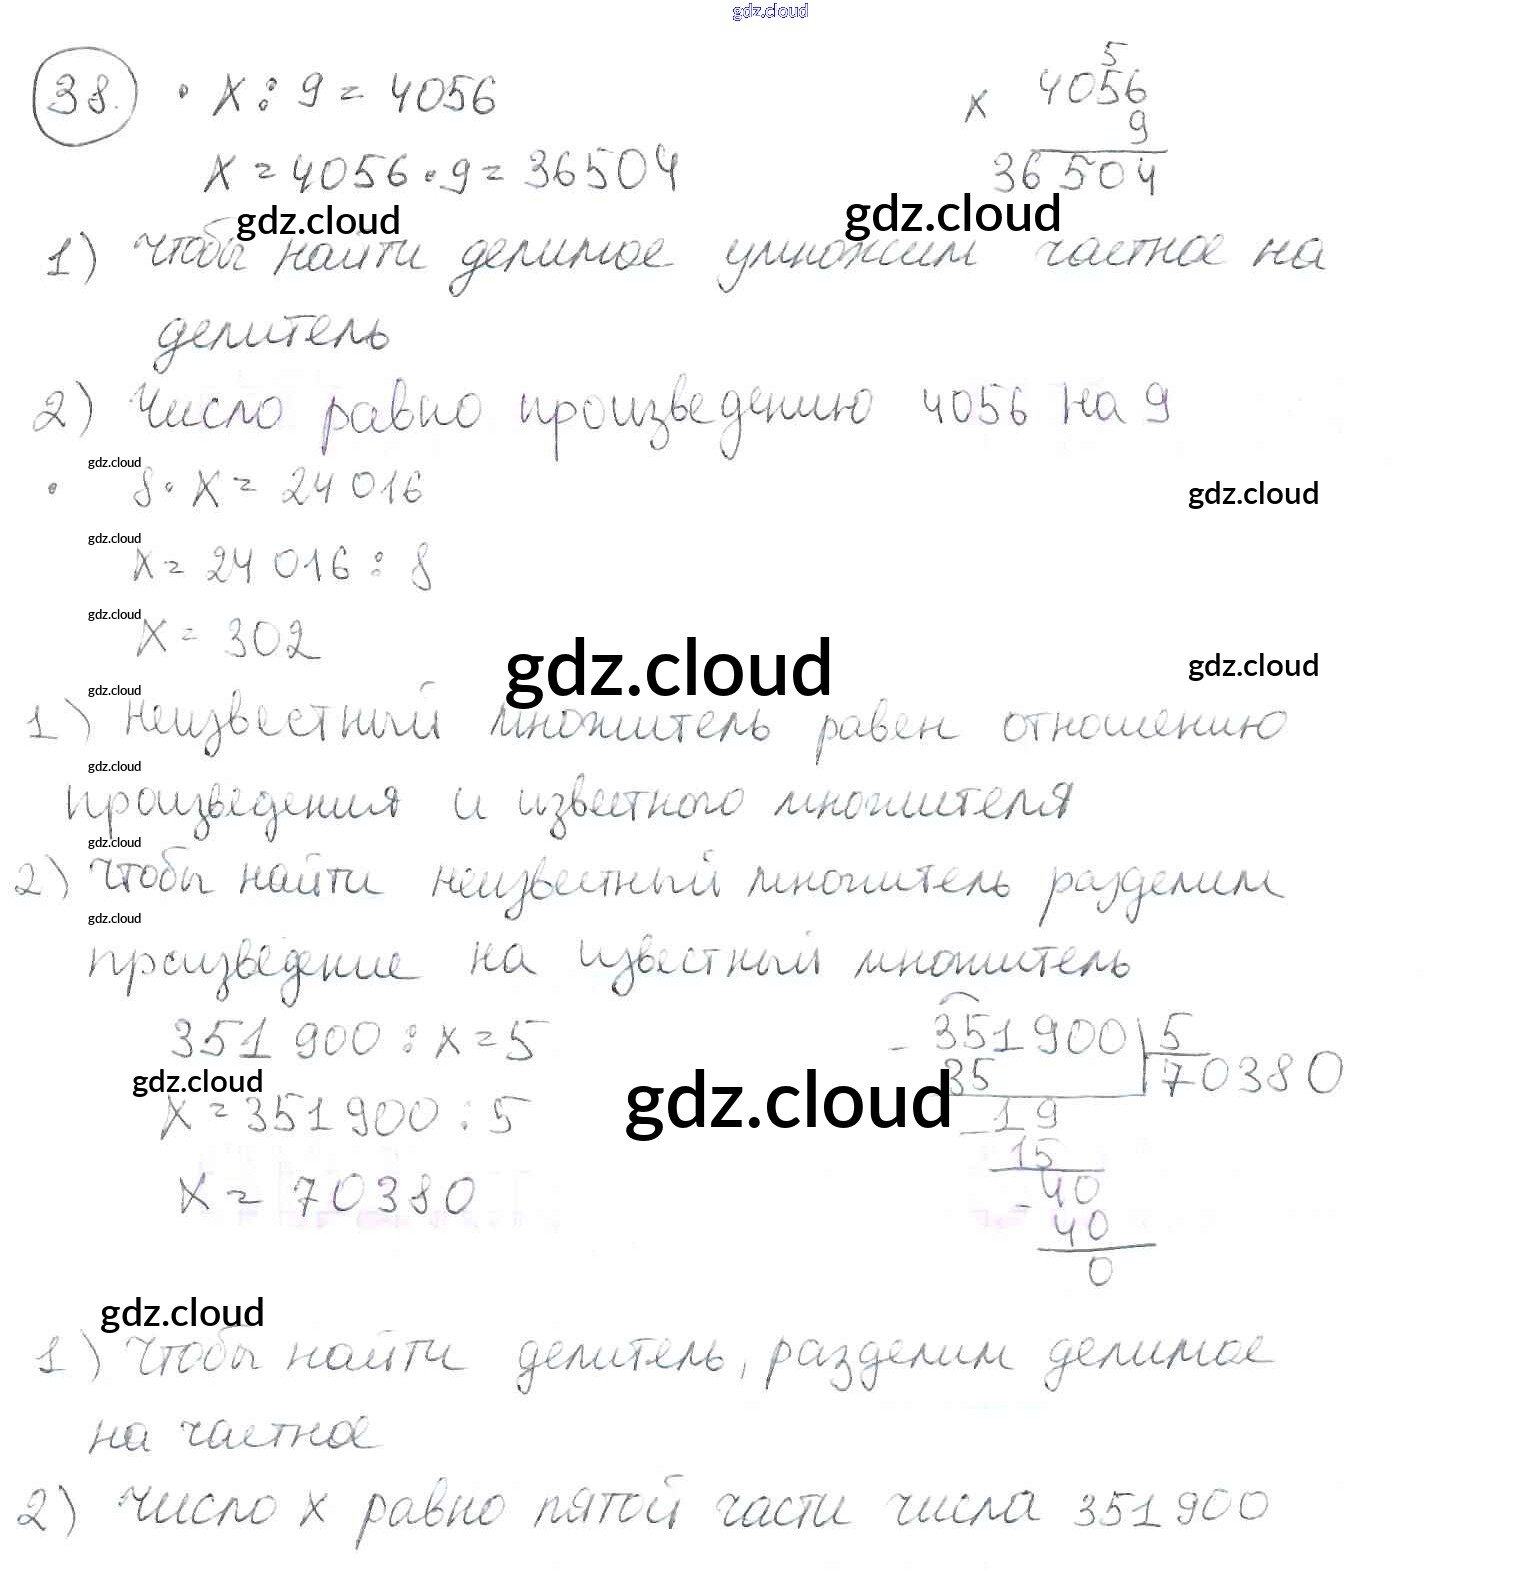 gdz.cloud
38. • x : 9 = 4056
5
x 4056
9
x = 4056 • 9 = 36504
36504
gdz.cloud
gdz.cloud
1) Чтобы найти делимое умножим частное на
делитель
2) Число равно произведению 4056 на 9
gdz.cloud
• 8 • x = 24 016
gdz.cloud
gdz.cloud
x = 24 016 : 8
gdz.cloud
x = 302
gdz.cloud
gdz.cloud
gdz.cloud
1) Неизвестный множитель равен отношению
gdz.cloud
произведения и известного множителя
gdz.cloud
2) Чтобы найти неизвестный множитель разделим
gdz.cloud
произведение на известный множитель
351 900 : x = 5
- 351900 5
35 70380
gdz.cloud
gdz.cloud
x = 351 900 : 5
- 19
15
x = 70380
- 40
40
0
gdz.cloud
1) Чтобы найти делитель, разделим делимое
на частное
2) Число x равно пятой части числа 351 900